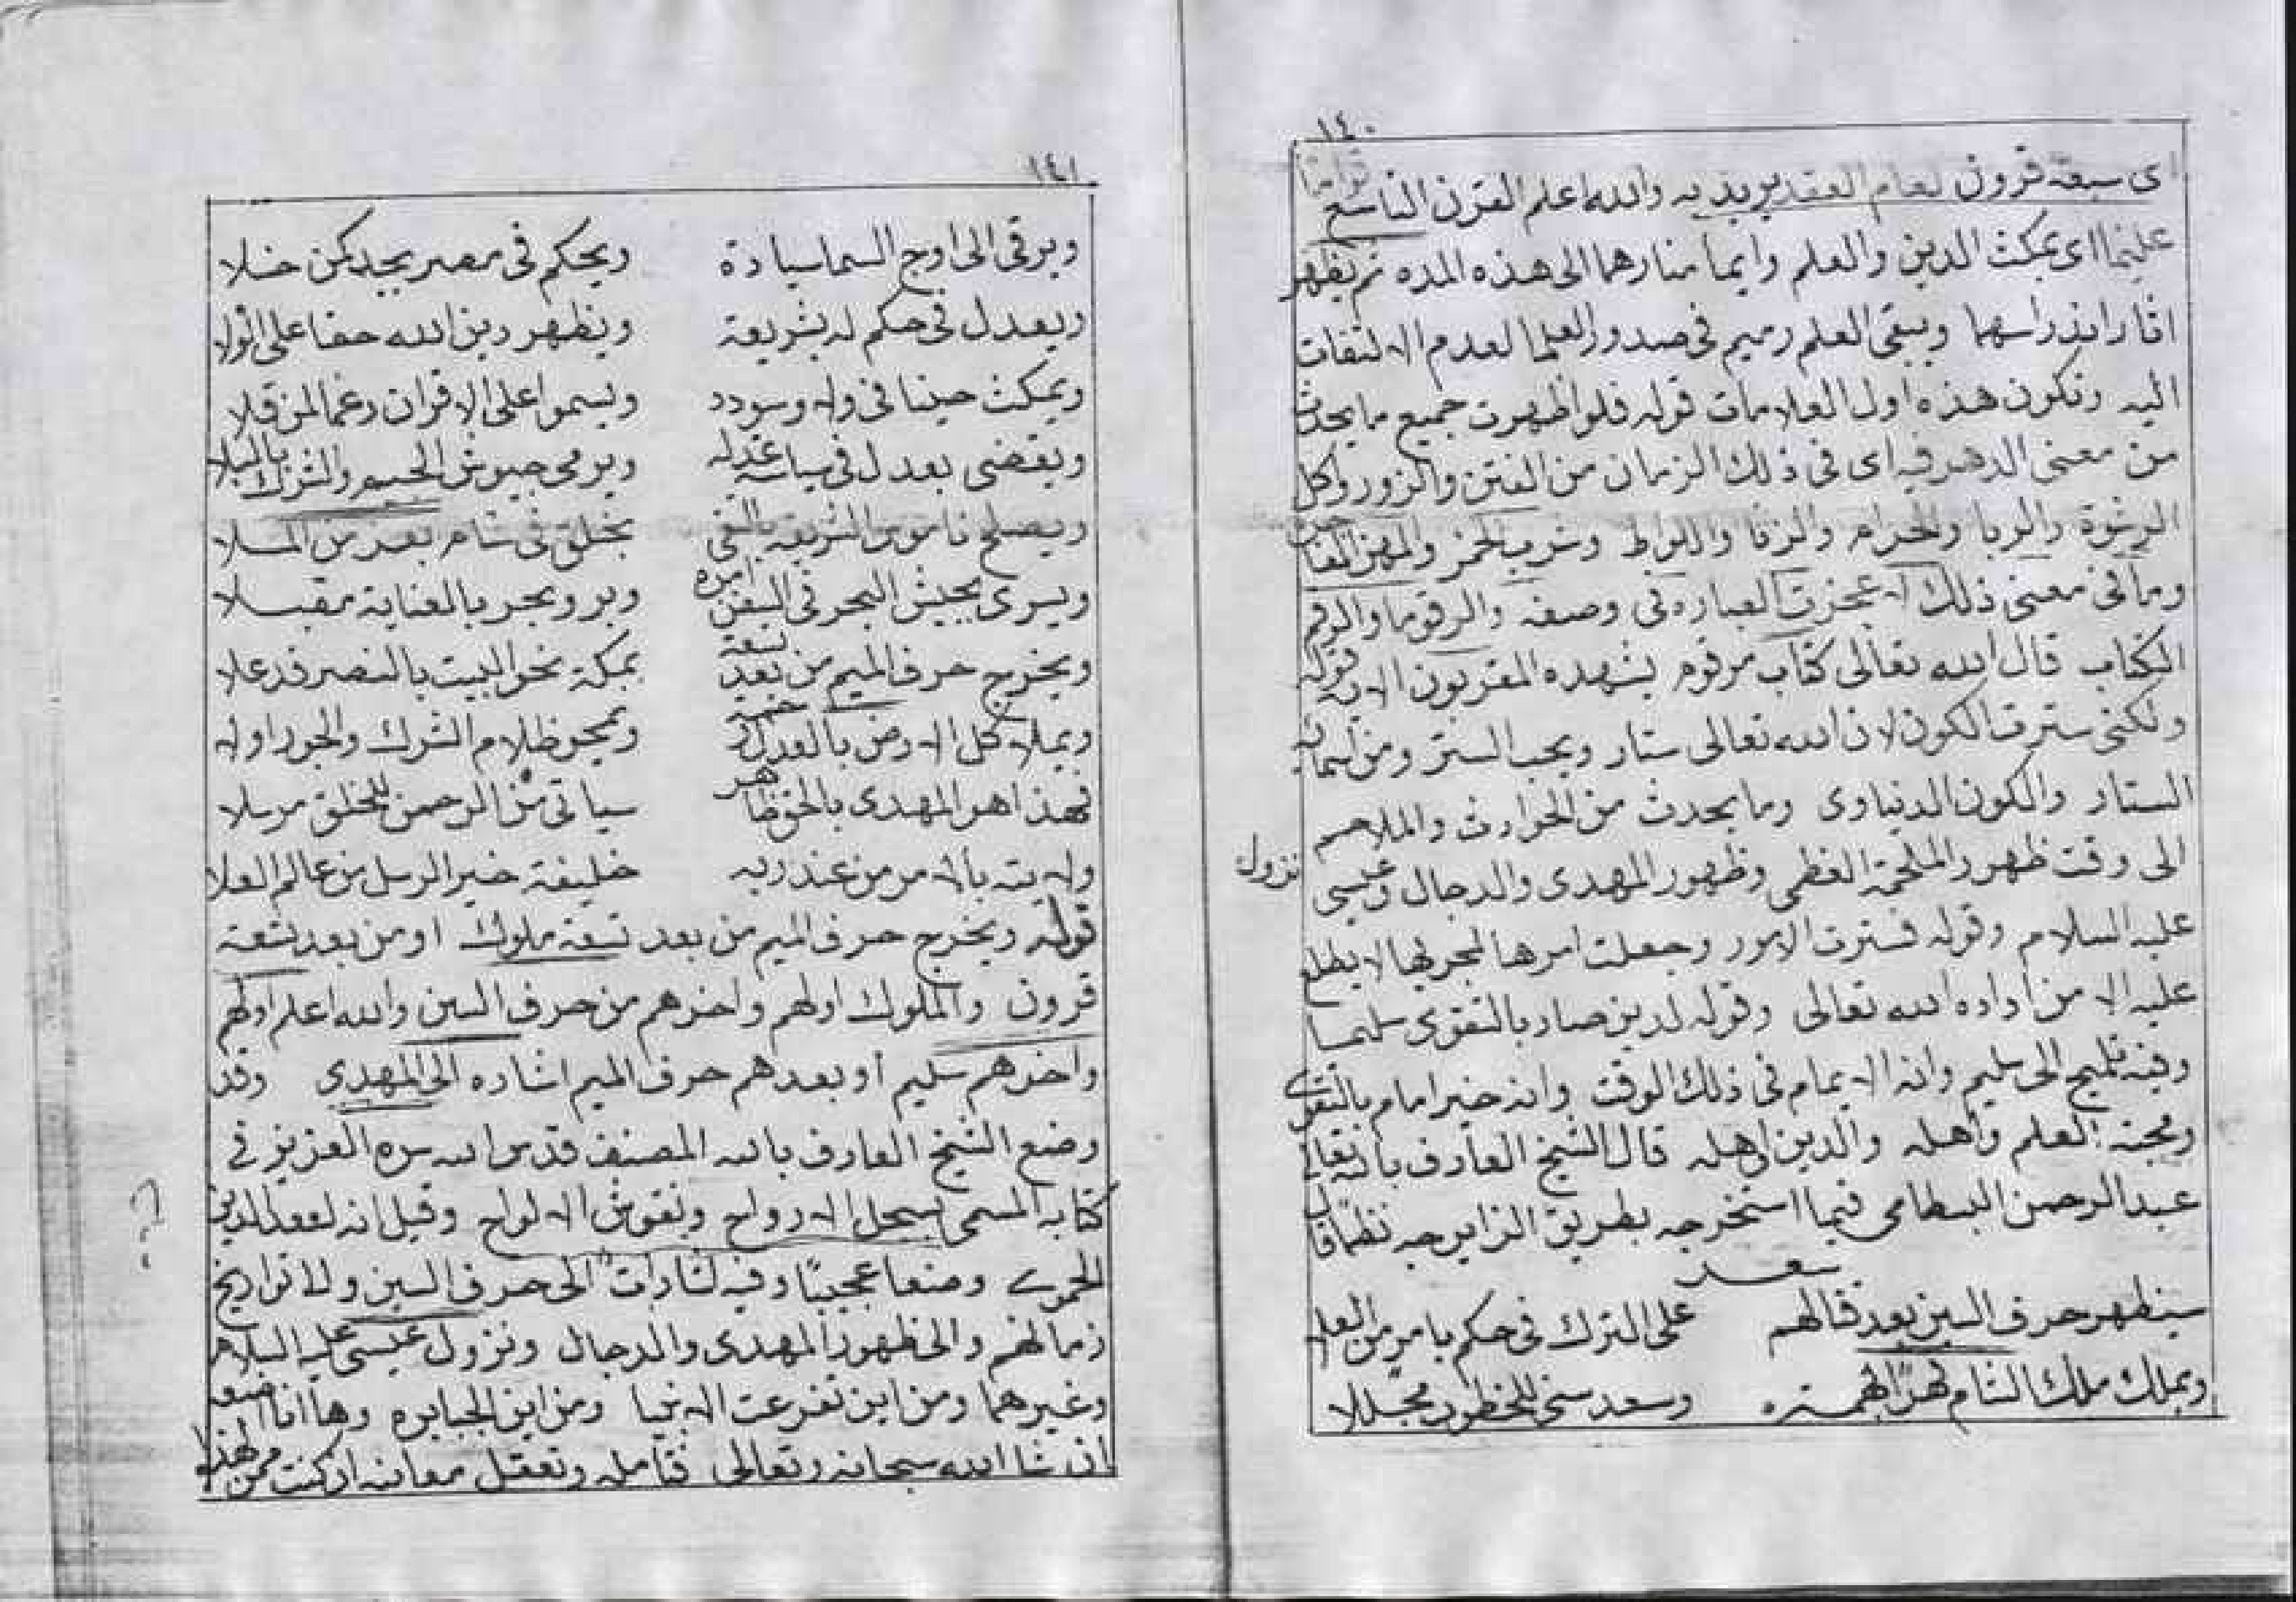 ١٤٠
اى سبعة قرون لعام العقد يريد به والله اعلم القرن التاسع
علنهما اى يمكث الدين والعلم وايما منارهما الى هذه المده ثم يظهر
اثار اندراسهما ويبقى العلم رميم فى صدور العلما لعدم الالتفات
اليه وتكون هذه اول العلامات قوله فلو اظهرت جميع ما يحدث
من معنى الدهر فيه اى فى ذلك الزمان من الفتن والزور واكل
الرشوة والربا والحرام والزنا واللواط وشرب الخمر والمهن
وما فى معنى ذلك لعجزت العباره فى وصفه والرقوما والرقم
الكتاب قال الله تعالى كتاب مرقوم يشهده المقربون الايه قوله
ولكنى سترت الكون لان الله تعالى ستار ويحب الستر ومن اسمائه
الستار والكون الدنياوى وما يحدث من الحوادث والملاحم
الى وقت ظهور الملحمة العظمى وظهور المهدى والدجال وعيسى
نزول
عليه السلام وقوله فسترت الامور وجعلت امرها لمجريها لا يطلع
عليه الا من اراده الله تعالى وقوله لدين صار بالتقوى سليما
وفيه تلميح الى سليم وانه الامام فى ذلك الوقت وانه خير امام بالتقوى
ومحبته العلم واهله والدين اهله قال الشيخ العارف بالله تعالى
عبد الرحمن البسطامى فيما استخرجه بطريق الزايرجه نظما قال
سعد
سيظهر حرف السين بعد قالهم على الترك فى حكم بامر من العلا
ويملك ملك الشام وسعد سخى للخطوب مجللا
١٤١
ويرقى الى اوج السما سيادة ويحكم فى مصر بجد كمن خلا
ويعدل فى حكم له بشريعة ويظهر دين الله حقا على الولا
ويمكث حينا فى ولا وسودد ويسموا على الاقران رغما لمن قلا
ويقضى بعدل فى سياسة عدله ويرمى جيوش الجيم والشرك بالبلا
ويصلح ناموس الشريعة بالتقى بخلق فى شام بعد من الملا
ويسرى بجيش البحر فى السفن امره وبر وبحر بالعناية مقبلا
ويخرج حرف الميم من بعد تسعة بمكة نحو البيت بالنصر قد علا
ويملا كل الارض بالعدل ويمحو ظلام الشرك والجور اولا
فهذا هو المهدى بالحق ظاهر سياتى من الرحمن للخلق مرسلا
ولايته بالامر من عند ربه خليفة خير الرسل من عالم العلا
قوله ويخرج حرف الميم من بعد تسعة ملوك او من بعد تسعة
قرون والملوك اولهم واخرهم من حرف السين والله اعلم اولهم
واخرهم سليم او بعدهم حرف الميم اشاره الى المهدى وقد
وضع الشيخ العارف بالله المصنف قدس الله سره العزيز فى
كتابه المسمى بسجل الارواح ونقوش الالواح وقيل انه لسعد الدين
الحموى وضعا عجيبًا وفيه اشارات الى حرف السين ولا تواريخ
زمانهم والى ظهور المهدى والدجال ونزول عيسى عليه السلام
وغيرهما ومن اين تفرعت الانبيا ومن اين الجبابره وها انا اضعه
ان شا الله سبحانه وتعالى فتامله وتعقل معانيه ان كنت ممن